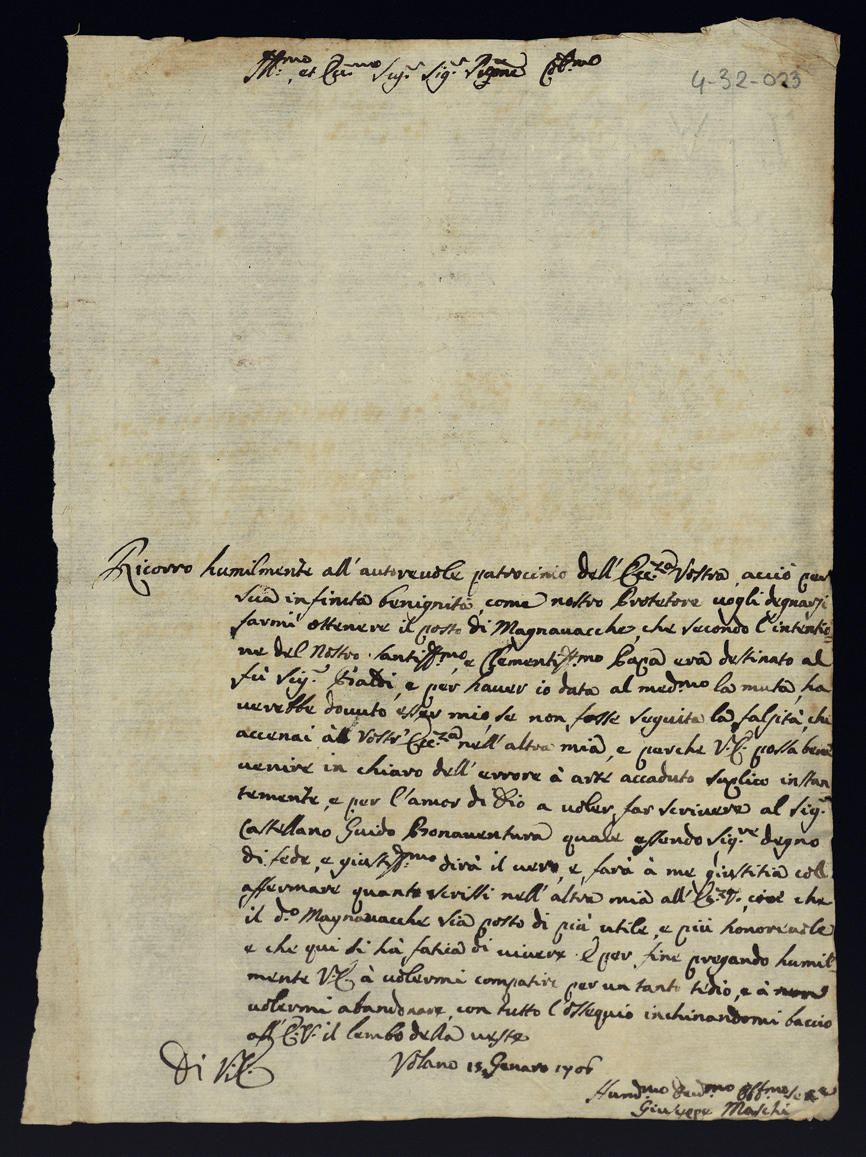 Ill.mo, et Ecc.mo Sig.r Sig.r P.rone Col.mo
4-32-023
Ricorro humilmente all'autoreuole patrocinio dell'Ecc.za Vostra, acciò per
sua infinita benignità, come nostro Protetore uogli degnarsi
farmi ottenere il posto di Magnauacche, che secondo l'intentio
ne del Nostro Santiss.mo, e Clementiss.mo Papa era destinato al
fù Sig.r Baldi, e per hauer io data al med.mo la muta, ha
uerebbe douuto esser mio, se non fosse seguita la falsità, che
accenai all Vostr'Ecc.za nell'altra mia, e perche V.E. possa bene
uenire in chiaro dell'errore à arte accaduto suplico instan
temente, e per l'amor di Dio a uoler far scriuere al Sig.r
Castellano Guido Bonauentura quale essendo sig.re degno
di fede, e giustiss.mo dirà il uero, e farà à me giustitia coll
affermare quanto scrissi nell'altra mia all'Ecc.V., cioè che
il d.o Magnauacche sia posto di più utile, e più honoreuole
e che qui si hà fatica di uiuere. E per fine pregando humil-
mente V.E. à uolermi compatire per un tanto tedio, e à non
uolermi abandonare, con tutto l'ossequio inchinandomi baccio
all'E.V. il lembo della ueste
Di V.E. Volano 15 Genaro 1706
Hum.mo Deu.mo Obb.mo Ser.re
Giuseppe Maschi